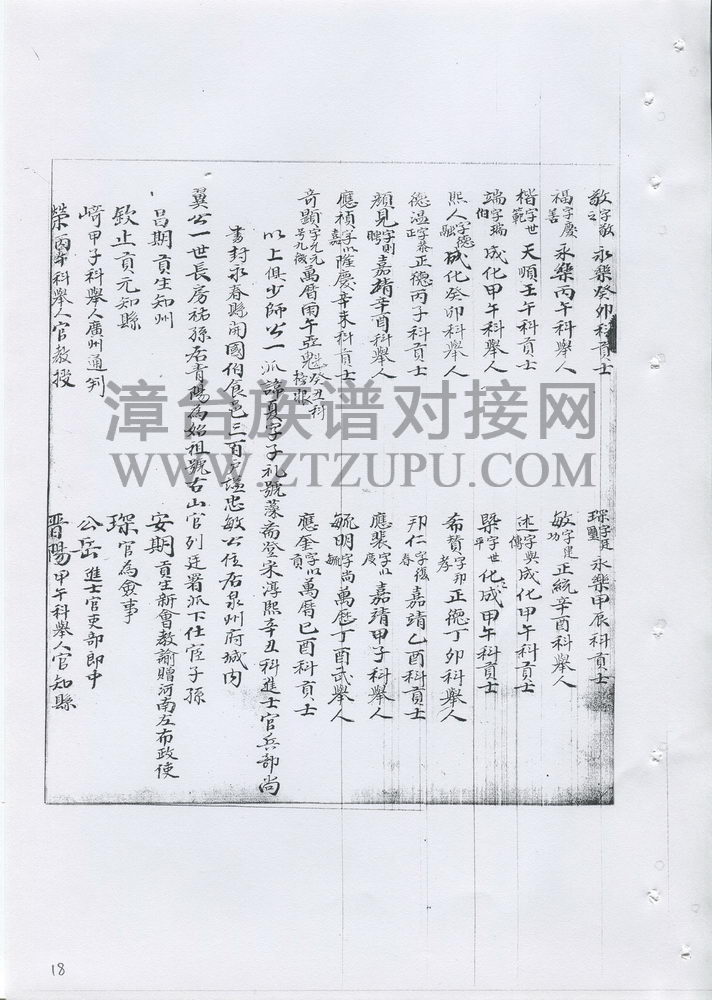 敬字敬之 永樂癸卯科貢士 琛字廷璽 永樂甲辰科貢士
福字慶善 永樂丙午科舉人 敏字建功 正統辛酉科舉人
楷字世範 天順壬午科貢士 述字與傳 成化甲午科貢士
端字瑞伯 成化甲午科舉人 槩字世平 化成甲午科貢士
熙人字德融 成化癸卯科舉人 希贊字邦孝 正德丁卯科舉人
德溫字泰正 正德丙子科貢士 邦仁字後春 嘉靖乙酉科貢士
顏見字則騁 嘉靖辛酉科舉人 應裴字以度 嘉靖甲子科舉人
應楨字以嘉 隆慶辛未科貢士 毓明字尚毓 萬曆丁酉武舉人
奇顯字元元號九微 萬曆丙午亞魁癸丑科榜眼 應奎字以貢 萬曆己酉科貢士
以上俱少師公一派 諱夏字子礼號蒙斋登宋淳熙辛丑科進士官兵部尚
書封永春縣開國伯食邑三百户諡忠敏公住居泉州府城内
翼公一世長房祐孫居青陽為始祖號古山官列廷署派下仕宦子孫
昌期貢生知州 安期貢生新會教諭贈河南左布政使
欽止貢元知縣 琛官為僉事
崎甲子科舉人廣州通判 公岳進士官吏部郎中
榮丙午科舉人官教授 晋陽甲午科舉人官知縣
漳台族谱对接网
WWW.ZTZUPU.COM
18